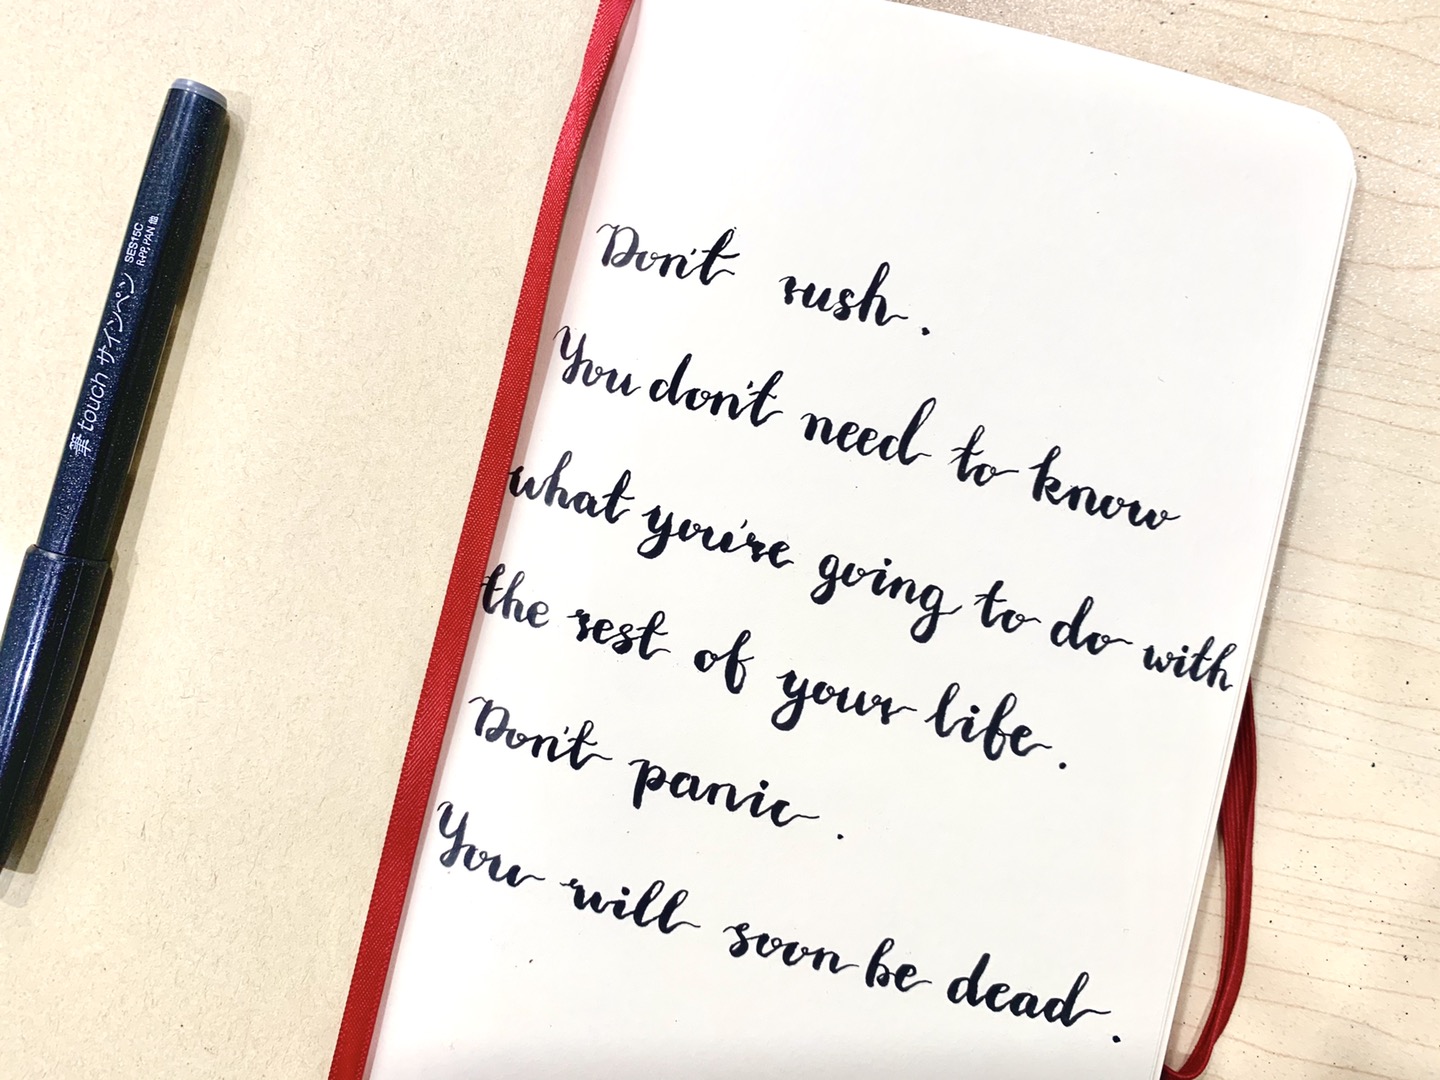 Don't rush.
You don't need to know
what you're going to do with
the rest of your life.
Don't panic.
You will soon be dead.
筆 touch サインペン
SES15C
R-PP, PAN 他